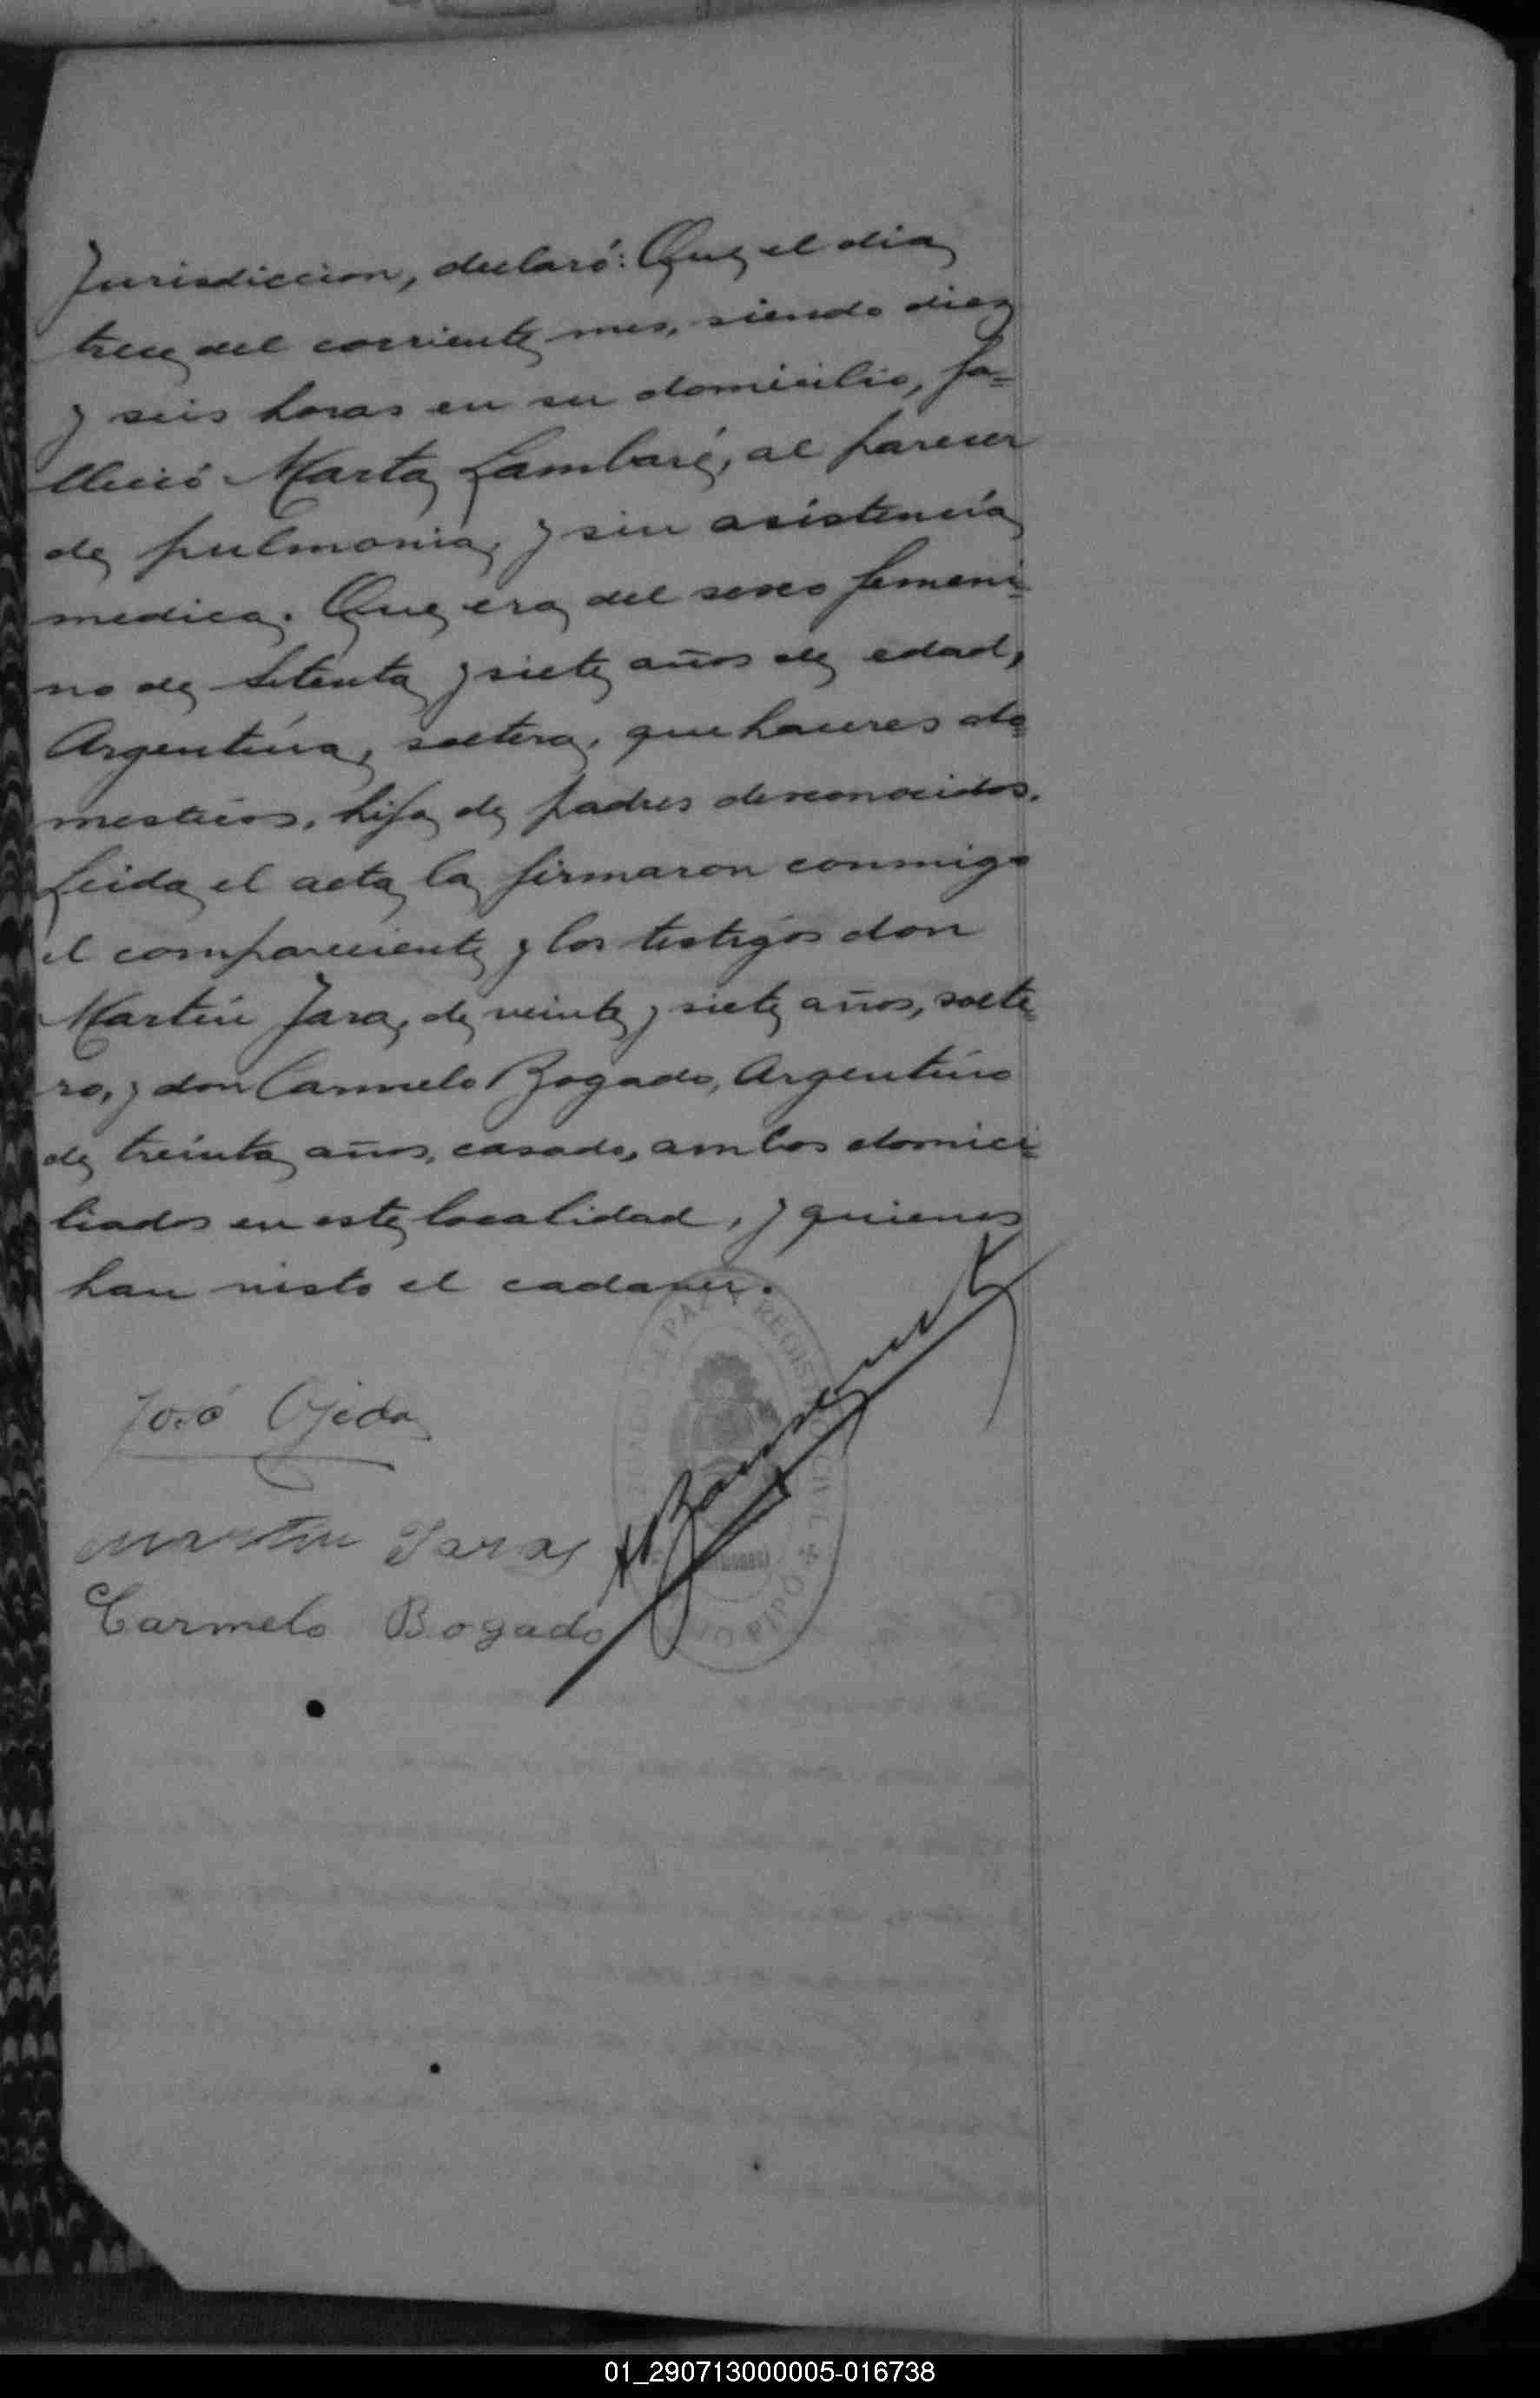 Jurisdiccion, declaró: Que el dia
trece del corriente mes, siendo diez
y seis horas en su domicilio, fa=
lleció Marta Lambaré, al parecer
de pulmonía, y sin asistencia
medica. Que era del sexo femeni=
no de setenta y siete años de edad,
Argentina, soltera, quehaceres do=
mesticos, hija de padres desconocidos.
Leida el acta la firmaron conmigo
el compareciente y los testigos don
Martin Jara, de veinte y siete años, solte=
ro, y don Carmelo Bogado, Argentino
de treinta años, casado, ambos domici=
liados en este localidad, y quienes
han visto el cadaver.
José Ojeda
Martin Jara
Carmelo Bogado
PAZ Y REGISTRO CIVIL
01_290713000005-016738